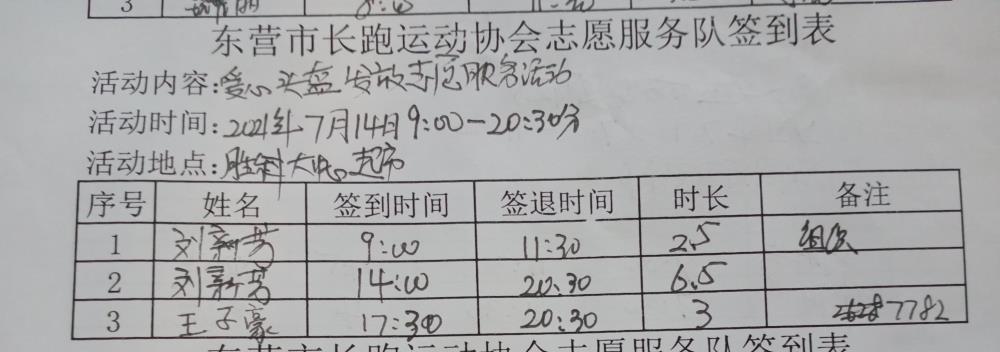 3 8:00
东营市长跑运动协会志愿服务队签到表
活动内容:爱心头盔发放志愿服务活动
活动时间:2021年7月14日9:00-20:30分
活动地点:胜利大 超市
序号 姓名 签到时间 签退时间 时长 备注
1 刘新芳 9:00 11:30 2.5 组织
2 刘新芳 14:00 20:30 6.5
3 王子豪 17:30 20:30 3 7782
东营市长跑运动协会志愿服务队签到表